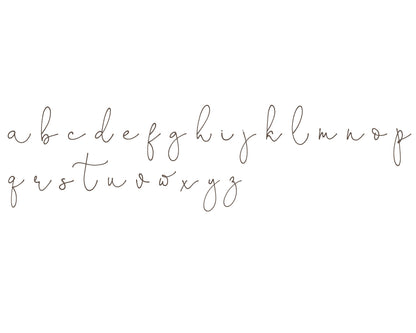 a b c d e f g h i j k l m n o p
q r s t u v w x y z